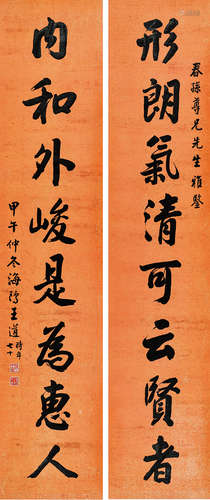 春孫尊兄先生雅鑒
形朗氣清可云賢者
內和外峻是為惠人
甲午仲冬海隅王道時年七十